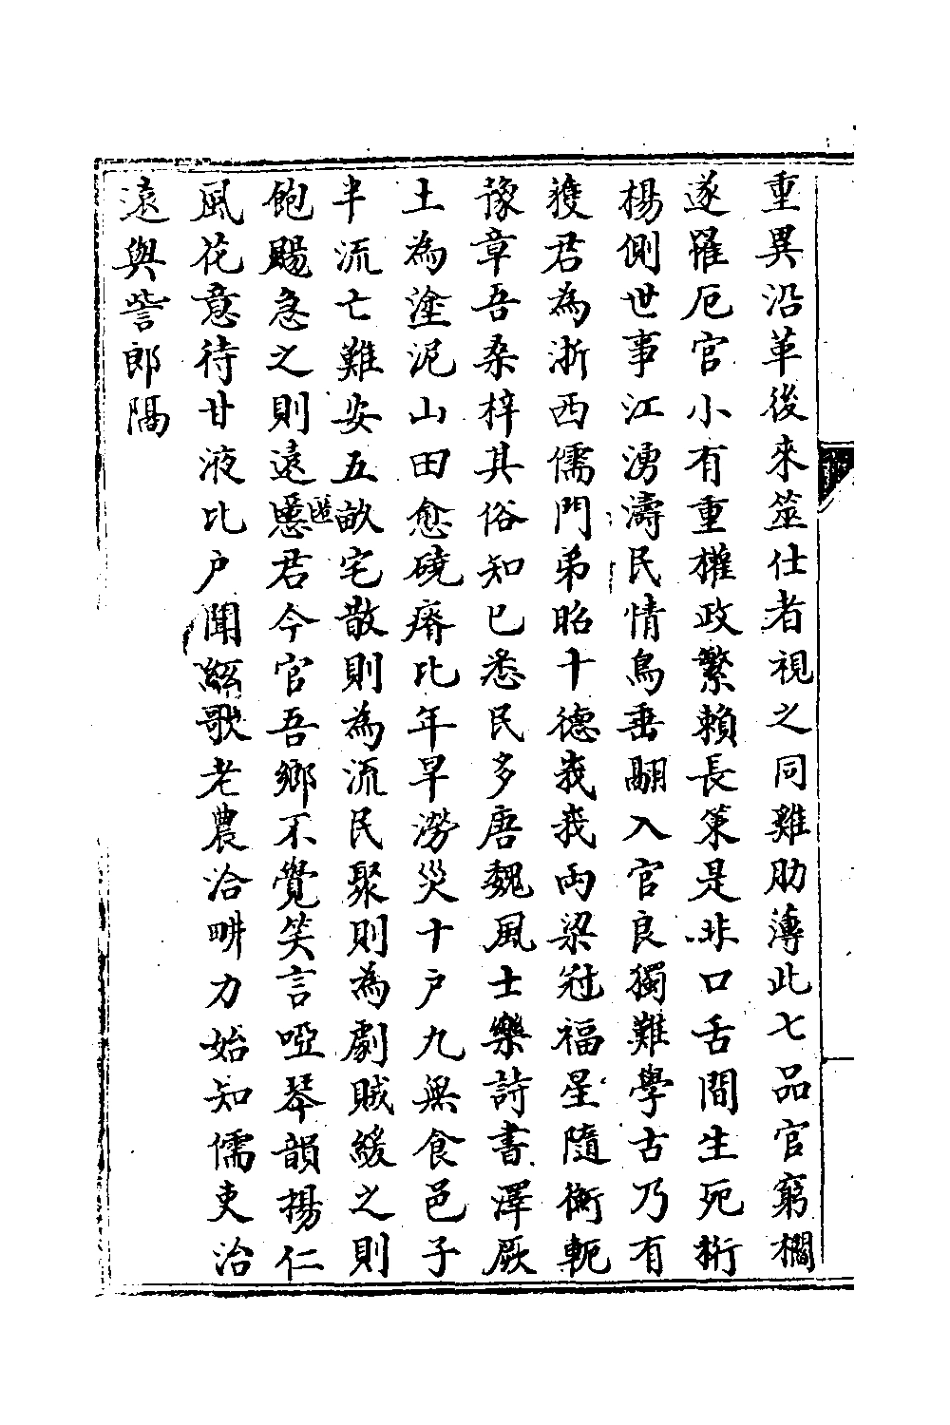 重異沿革後來筮仕者視之同雞肋薄此七品官窮櫚
遂罹厄官小有重權政繁賴長策是非口舌間生死桁
楊側世事江湧濤民情鳥垂翮入官良獨難學古乃有
獲君為浙西儒門弟昭十德我我両梁冠福星隨衡軛
豫章吾桑梓其俗知已悉民多唐魏風士樂詩書澤厥
土為塗泥山田愈磽瘠比年旱澇災十戶九無食邑子
半流亡難安五畝宅散則為流民聚則為劇賊緩之則
飽颺急之則遠慝匿君今官吾鄉不覺笑言啞琴韻揚仁
風花意待甘液比戶聞絃歌老農洽畊力始知儒吏治
遠與訾郎隔